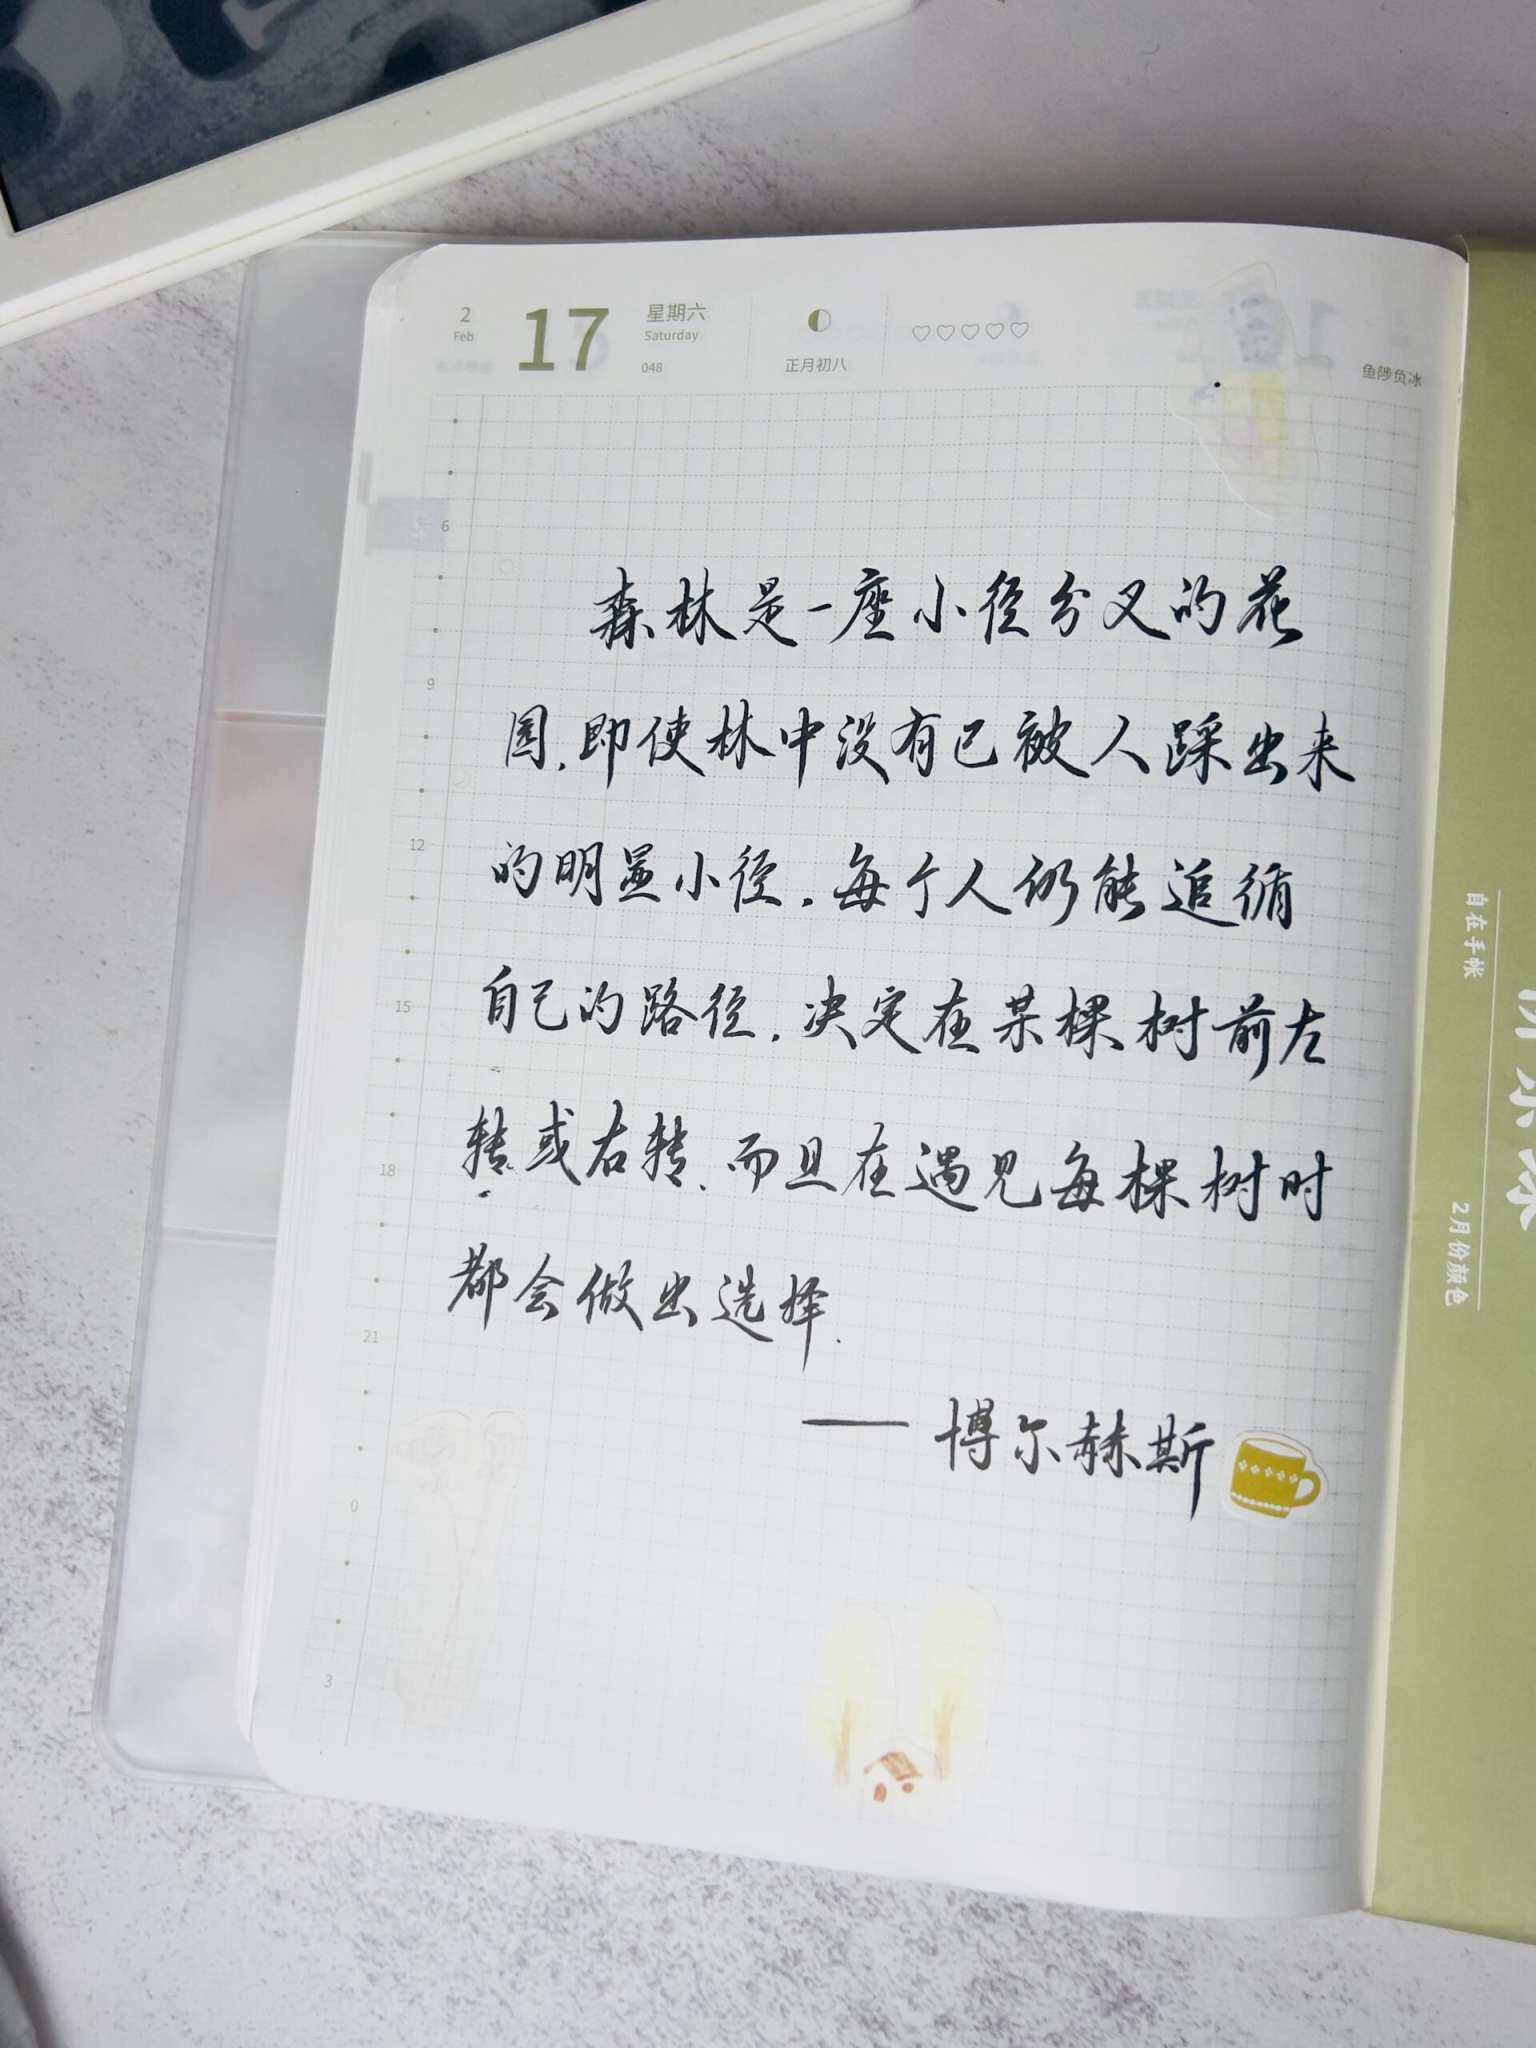 2
Feb
17
星期六
Saturday
048
正月初八
鱼陟负冰
6
9
12
15
18
21
0
3
森林是一座小径分叉的花
园,即使林中没有已被人踩出来
的明显小径,每个人仍能追循
自己的路径,决定在某棵树前左
转或右转,而且在遇见每棵树时
都会做出选择.
——博尔赫斯
自在手帐
2月份颜色